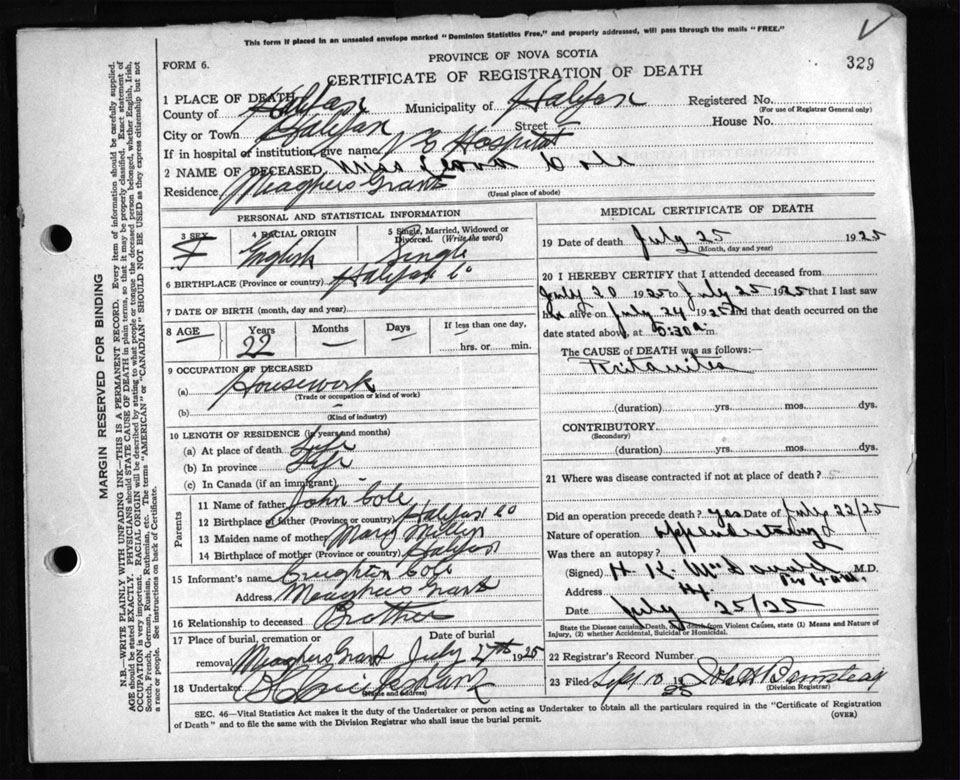 This form if placed in an unsealed envelope marked "Dominion Statistics Free," and properly addressed, will pass through the mails "FREE."
FORM 6.
PROVINCE OF NOVA SCOTIA
329
CERTIFICATE OF REGISTRATION OF DEATH
1 PLACE OF DEATH
County of Halifax Municipality of Halifax Registered No.
(For use of Registrar General only)
City or Town Halifax Street House No.
If in hospital or institution, give name V G Hospital
2 NAME OF DECEASED Miss Leona Cole
Residence Meaghers Grant
(Usual place of abode)
PERSONAL AND STATISTICAL INFORMATION
3 SEX 4 RACIAL ORIGIN 5 Single, Married, Widowed or Divorced. (Write the word)
F English Single
6 BIRTHPLACE (Province or country) Halifax Co
7 DATE OF BIRTH (month, day and year)
8 AGE Years Months Days If less than one day,
22 — hrs. or min.
9 OCCUPATION OF DECEASED
(a) Housework
(Trade or occupation or kind of work)
(b) —
(Kind of industry)
10 LENGTH OF RESIDENCE (in years and months)
(a) At place of death Life
(b) In province Life
(c) In Canada (if an immigrant)
Parents
11 Name of father John Cole
12 Birthplace of father (Province or country) Halifax Co
13 Maiden name of mother Mary
14 Birthplace of mother (Province or country) Halifax
15 Informant's name Creighton Cole
Address Meaghers Grant
16 Relationship to deceased Brother
17 Place of burial, cremation or Date of burial
removal Meaghers Grant July 27th 1925
18 Undertaker
(Name and address)
MEDICAL CERTIFICATE OF DEATH
19 Date of death July 25 1925
(Month, day and year)
20 I HEREBY CERTIFY that I attended deceased from
July 20 1925 to July 25 1925 that I last saw
her alive on July 24 1925 and that death occurred on the
date stated above, at 5:30 a m.
The CAUSE OF DEATH was as follows:
(duration) yrs. mos. dys.
CONTRIBUTORY
(Secondary)
(duration) yrs. mos. dys.
21 Where was disease contracted if not at place of death?
Did an operation precede death? yes Date of July 22/25
Nature of operation
Was there an autopsy?
(Signed) H. K. McDonald M.D.
Address Hx.
Date July 25/25
State the Disease causing Death, and death from Violent Causes, state (1) Means and Nature of Injury, (2) whether Accidental, Suicidal or Homicidal.
22 Registrar's Record Number
23 Filed Sept 10 1925
(Division Registrar)
SEC. 46—Vital Statistics Act makes it the duty of the Undertaker or person acting as Undertaker to obtain all the particulars required in the "Certificate of Registration
of Death" and to file the same with the Division Registrar who shall issue the burial permit.
(OVER)
MARGIN RESERVED FOR BINDING
N.B.—WRITE PLAINLY WITH UNFADING INK—THIS IS A PERMANENT RECORD. Every item of information should be carefully supplied.
AGE should be stated EXACTLY. PHYSICIANS should STATE CAUSE OF DEATH in plain terms, so that it may be properly classified. Exact statement of
OCCUPATION is very important. RACIAL ORIGIN will be described by stating to what people or tongue the deceased person belonged, whether English, Irish,
Scotch, French, German, Russian, Ruthenian, etc. The terms "AMERICAN" or "CANADIAN" SHOULD NOT BE USED as they express citizenship but not
a race or people. See instructions on back of Certificate.